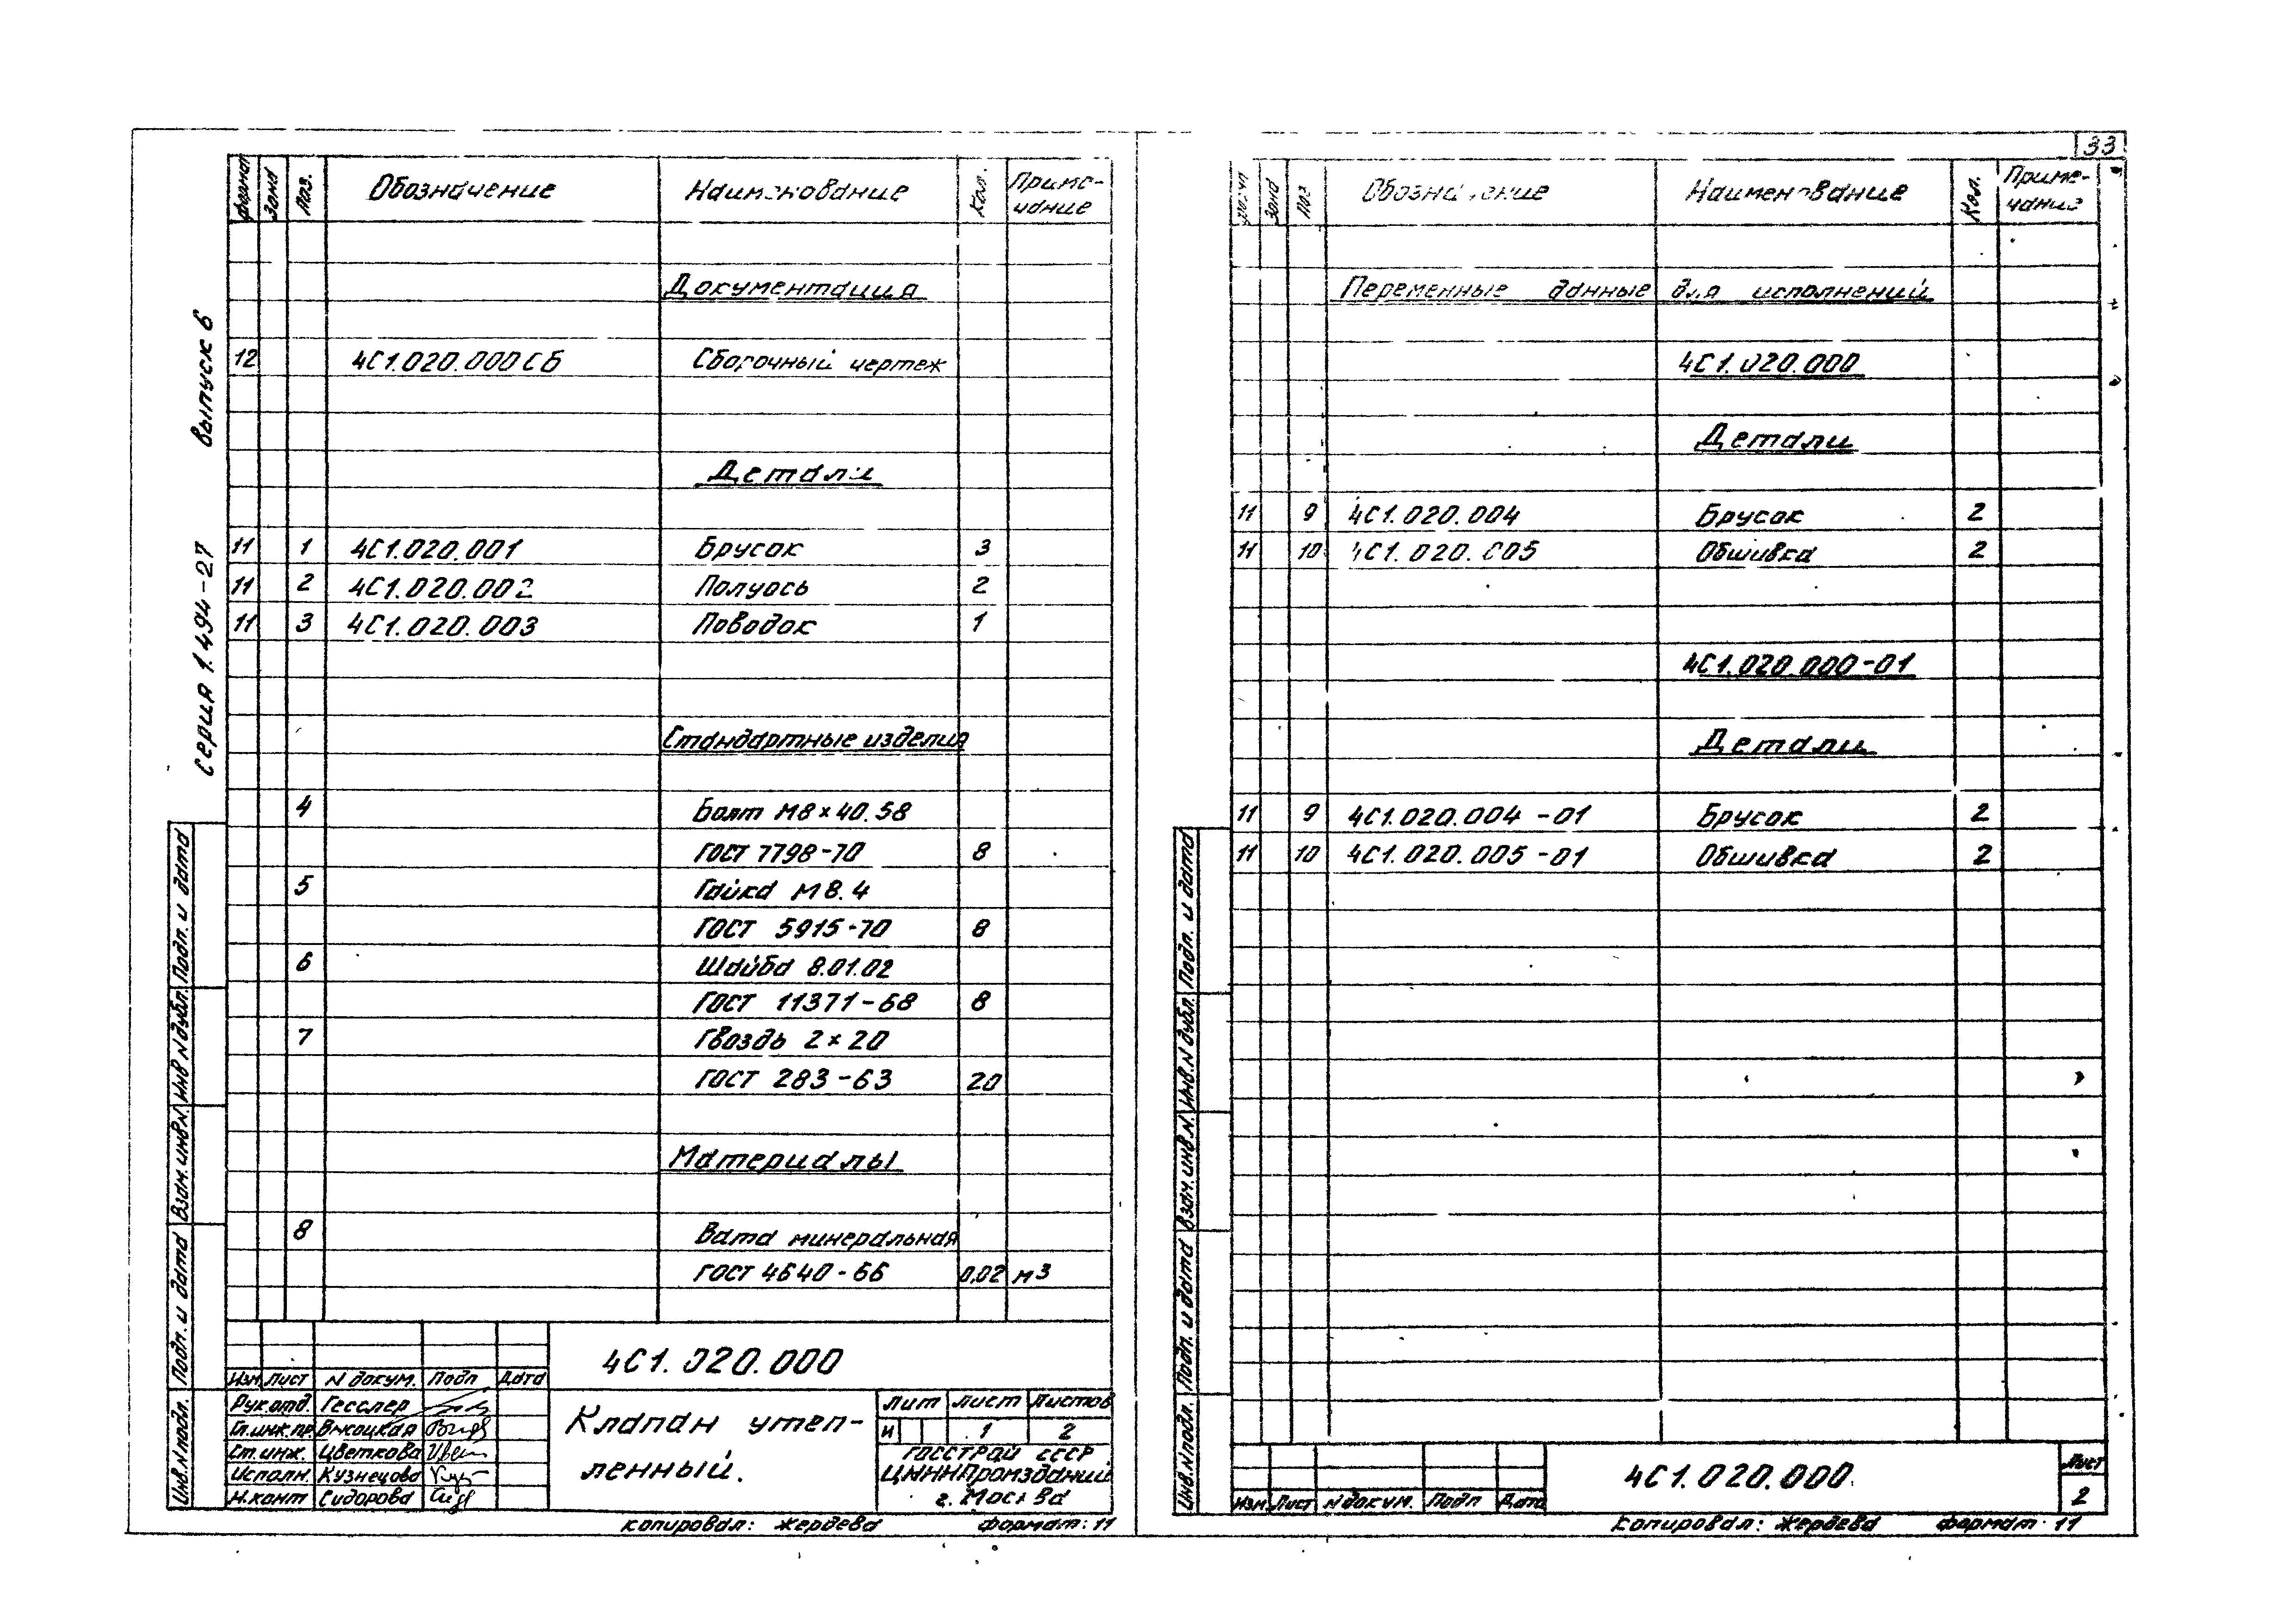 33
Серия 1.494-27 Выпуск 6
Формат Зона Поз. Обозначение Наименование Кол. Примечание
Документация
12 4С1.020.000СБ Сборочный чертеж
Детали
11 1 4С1.020.001 Брусок 3
11 2 4С1.020.002 Полуось 2
11 3 4С1.020.003 Поводок 1
Стандартные изделия
4 Болт М8×40.58
ГОСТ 7798-70 8
5 Гайка М8.4
ГОСТ 5915-70 8
6 Шайба 8.01.02
ГОСТ 11371-68 8
7 Гвоздь 2×20
ГОСТ 283-63 20
Материалы
8 Вата минеральная
ГОСТ 4640-66 0,02 м3
Инв.N подл. Подп. и дата Взам. инв.N. Инв.N дубл. Подп. и дата
4С1.020.000
Изм Лист N докум. Подп Дата
Рук.отд. Гесслер
Гл.инж.пр. Высоцкая
Ст.инж. Цветкова
Исполн. Кузнецова
Н.конт Сидорова
Клапан утеп-
ленный.
Лит Лист Листов
И 1 2
ГОССТРОЙ СССР
ЦНИИПромзданий
г. Москва
Копировал: Жердева Формат: 11
Зона Поз Обозначение Наименование Кол. Приме-
чание
Переменные данные для исполнений
4С1.020.000
Детали
11 9 4С1.020.004 Брусок 2
11 10 4С1.020.005 Обшивка 2
4С1.020.000-01
Детали
11 9 4С1.020.004-01 Брусок 2
11 10 4С1.020.005-01 Обшивка 2
Инв.N подл. Подп. и дата Взам. инв.N. Инв.N дубл. Подп. и дата
Изм Лист N докум. Подп Дата
4С1.020.000
Лист
2
Копировал: Жердева Формат 11